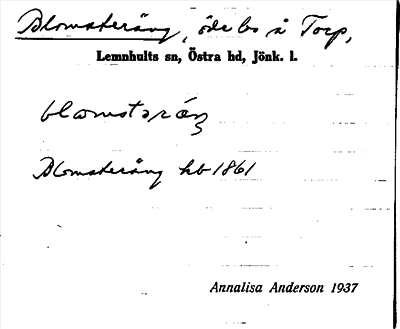 Blomsteräng, öde bs å Torp,
Lemnhults sn, Östra hd, Jönk. l.
blomstəráŋ
Blomsteräng hb 1861
Annalisa Anderson 1937